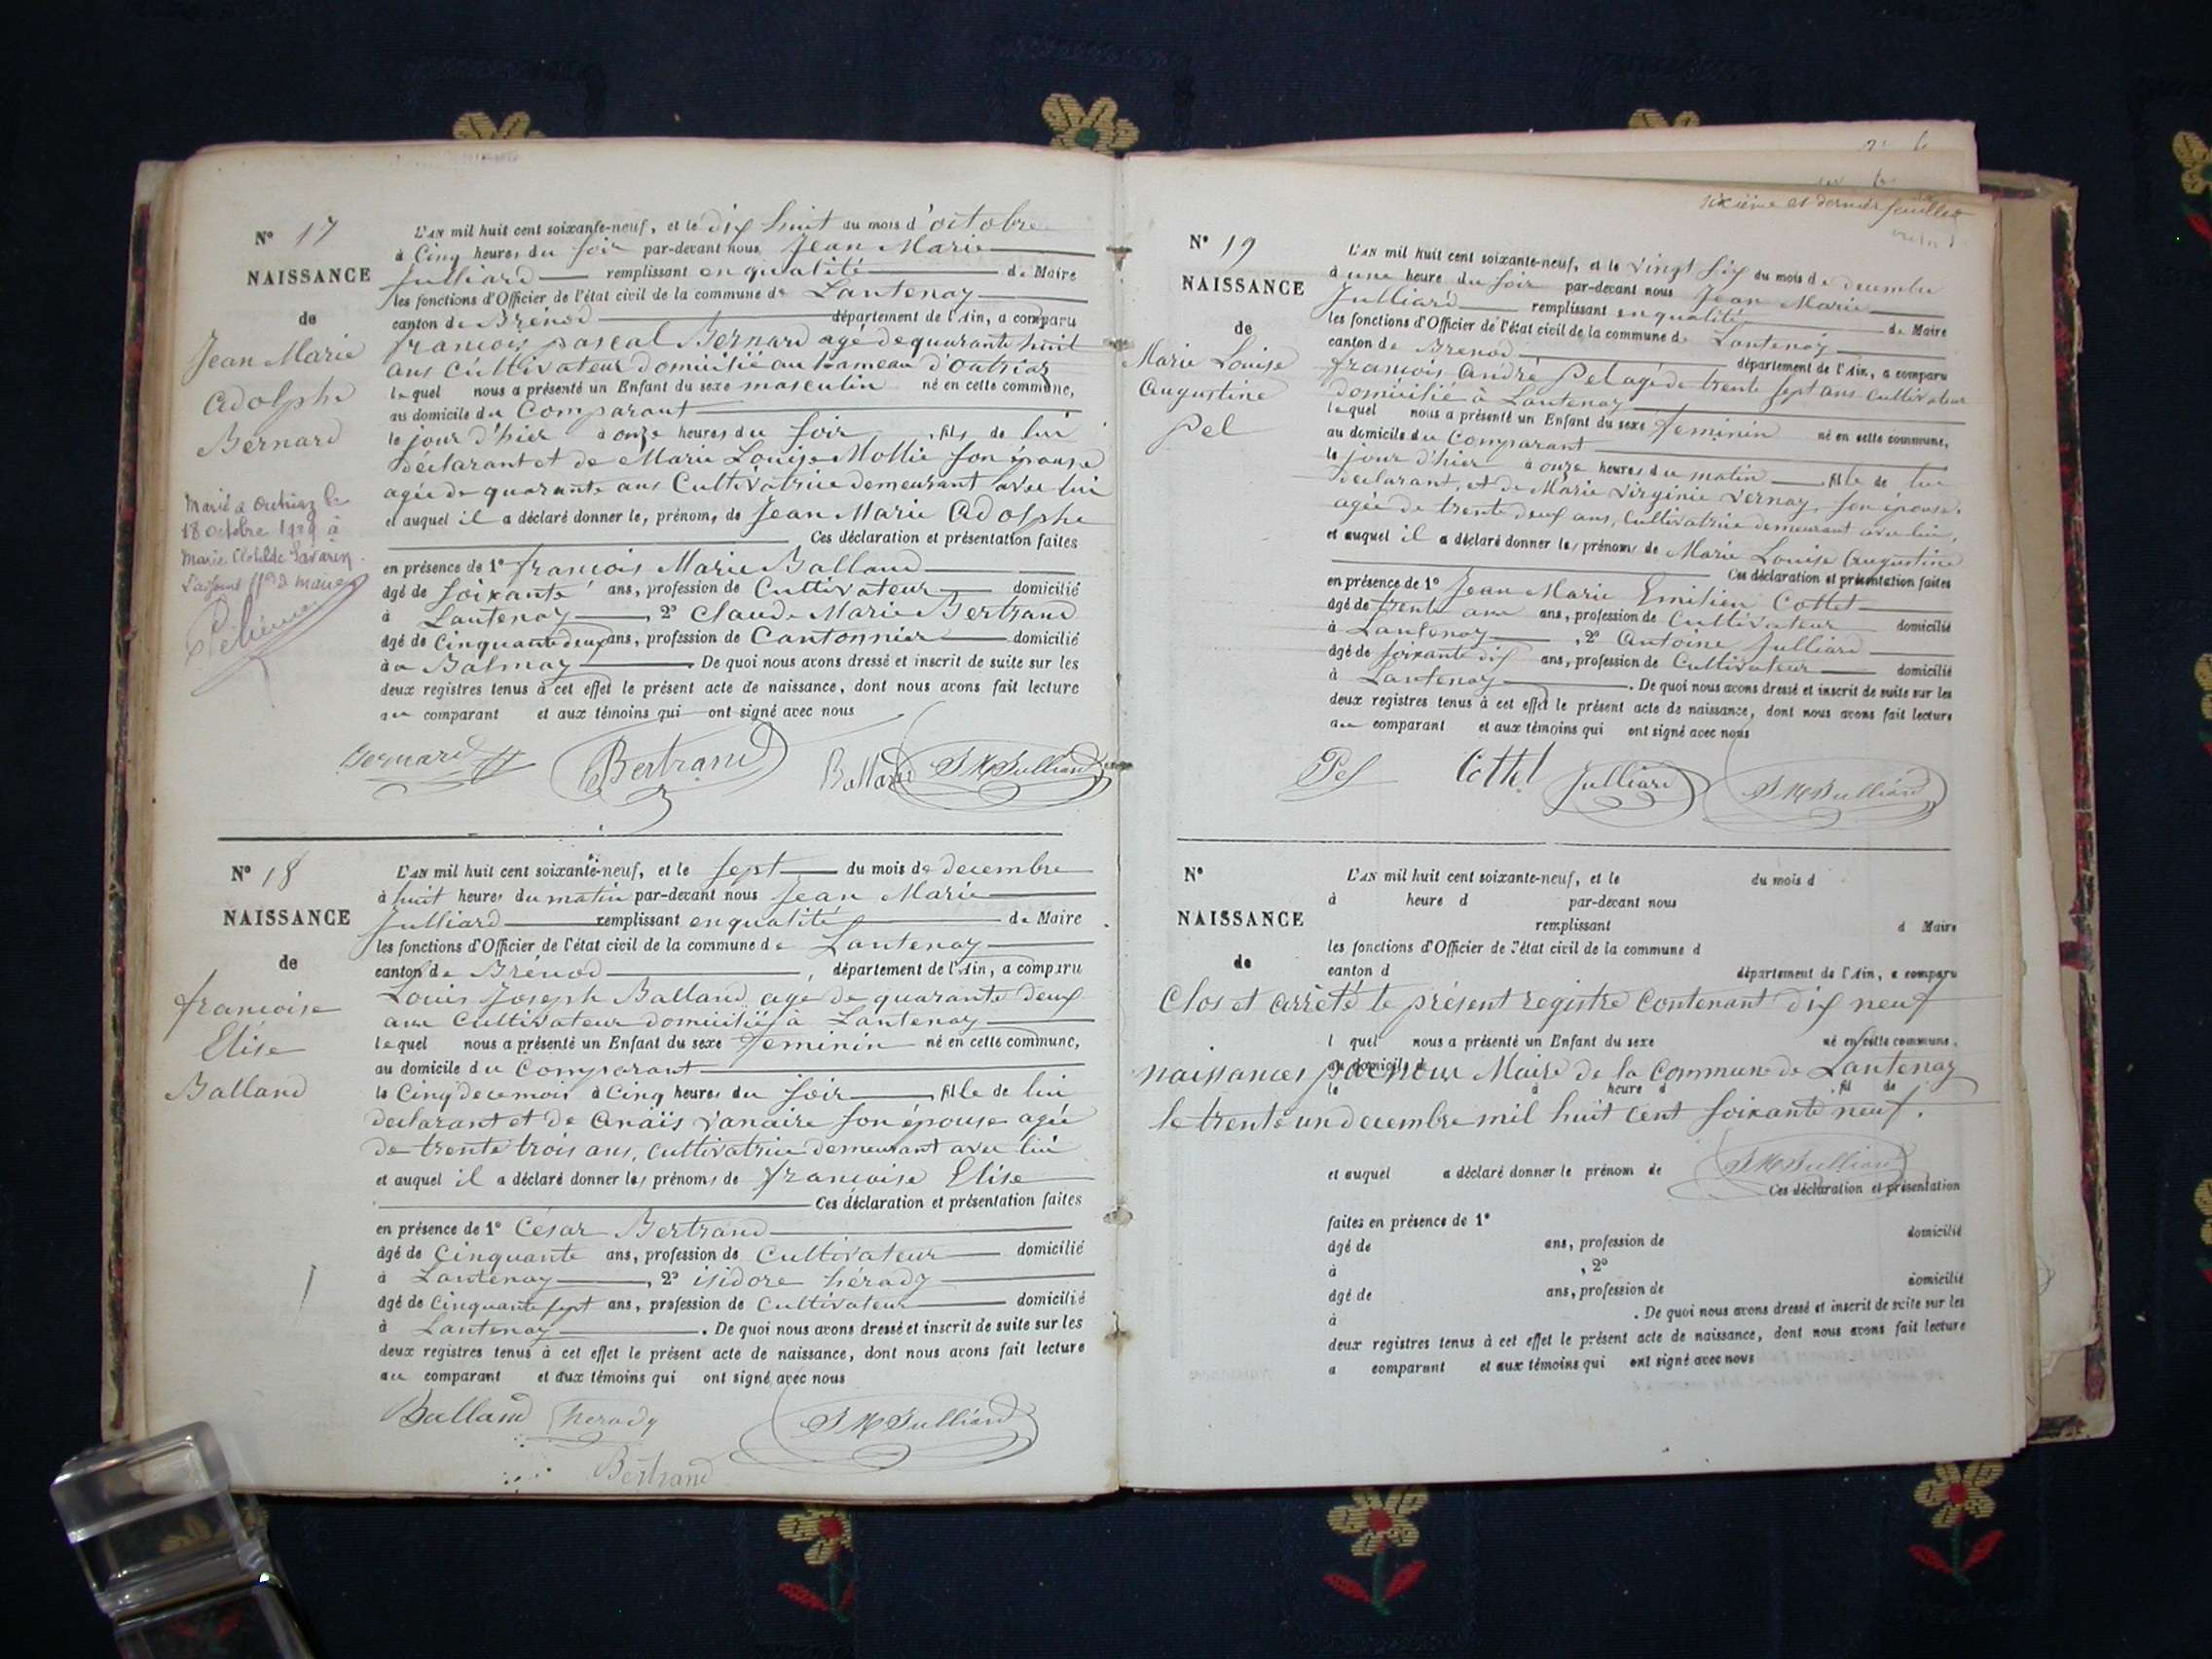 N° 17
NAISSANCE
de
Jean Marie
Adolphe
Bernard
Marié à Outriaz le
18 octobre 1929 à
Marie Clotilde Savarin.
L'adjoint ff.ons de maire
L'AN mil huit cent soixante-neuf, et le dix huit du mois d'octobre
à Cinq heures du soir par-devant nous Jean Marie
Julliard remplissant en qualité de Maire
les fonctions d'Officier de l'état civil de la commune de Lantenay
canton de Brénod département de l'Ain, a comparu
francois pascal Bernard agé de quarante huit
ans cultivateur domicilié au hameau d'outriaz
lequel nous a présenté un Enfant du sexe masculin né en cette commune,
au domicile du Comparant
le jour d'hier à onze heures du soir, fils de lui
déclarant et de Marie Louise Mollie son épouse
agée de quarante ans Cultivatrice demeurant avec lui
et auquel il a déclaré donner les prénoms de Jean Marie Adolphe
Ces déclaration et présentation faites
en présence de 1° francois Marie Balland
âgé de soixante ans, profession de Cultivateur domicilié
à Lantenay, 2° Claude Marie Bertrand
âgé de Cinquante deux ans, profession de Cantonnier domicilié
à la Balmay. De quoi nous avons dressé et inscrit de suite sur les
deux registres tenus à cet effet le présent acte de naissance, dont nous avons fait lecture
au comparant et aux témoins qui ont signé avec nous
Bernard Bertrand Balland JM Julliard
N° 18
NAISSANCE
de
francoise
Elise
Balland
L'AN mil huit cent soixante-neuf, et le sept du mois de decembre
à huit heures du matin par-devant nous Jean Marie
Julliard remplissant en qualité de Maire
les fonctions d'Officier de l'état civil de la commune de Lantenay
canton de Brénod, département de l'Ain, a comparu
Louis Joseph Balland agé de quarante deux
ans Cultivateur domicilié à Lantenay
lequel nous a présenté un Enfant du sexe feminin né en cette commune,
au domicile du Comparant
le Cinq de ce mois à Cinq heures du soir, fille de lui
declarant et de Anaïs Vanaire son épouse agée
de trente trois ans, cultivatrice demeurant avec lui
et auquel il a déclaré donner les prénoms de francoise Elise
Ces déclaration et présentation faites
en présence de 1° César Bertrand
âgé de Cinquante ans, profession de Cultivateur domicilié
à Lantenay, 2° isidore hérady
âgé de Cinquante sept ans, profession de Cultivateur domicilié
à Lantenay. De quoi nous avons dressé et inscrit de suite sur les
deux registres tenus à cet effet le présent acte de naissance, dont nous avons fait lecture
au comparant et aux témoins qui ont signé avec nous
Balland herady JM Julliard
Bertrand
sixième et dernier feuillet
N° 19
NAISSANCE
de
Marie Louise
Augustine
Pel
L'AN mil huit cent soixante-neuf, et le vingt six du mois de decembre
à une heure du soir par-devant nous Jean Marie
Julliard remplissant en qualité de Maire
les fonctions d'Officier de l'état civil de la commune de Lantenay
canton de Brenod département de l'Ain, a comparu
francois André Pel agé de trente sept ans cultivateur
domicilié à Lantenay
lequel nous a présenté un Enfant du sexe feminin né en cette commune,
au domicile du Comparant
le jour d'hier à onze heures du matin, fille de lui
declarant, et de Marie Virginie Vernay, son épouse,
agée de trente deux ans, Cultivatrice demeurant avec lui,
et auquel il a déclaré donner les prénoms de Marie Louise Augustine
Ces déclaration et présentation faites
en présence de 1° Jean Marie Emilien Cottet
âgé de trente ans ans, profession de Cultivateur domicilié
à Lantenay, 2° Antoine Julliard
âgé de soixante dix ans, profession de Cultivateur domicilié
à Lantenay. De quoi nous avons dressé et inscrit de suite sur les
deux registres tenus à cet effet le présent acte de naissance, dont nous avons fait lecture
au comparant et aux témoins qui ont signé avec nous
Pel Cottet Julliard JM Julliard
N°
NAISSANCE
de
L'AN mil huit cent soixante-neuf, et le du mois d
à heure d par-devant nous
remplissant d Maire
les fonctions d'Officier de l'état civil de la commune d
canton d département de l'Ain, a comparu
Clos et arrêté le présent registre Contenant dix neuf
l quel nous a présenté un Enfant du sexe né en cette commune,
au domicile d
naissances par nous Maire de la Commune de Lantenay
le à heure d, fil de
le trente un decembre mil huit cent soixante neuf.
JM Julliard
et auquel a déclaré donner le prénom de
Ces déclaration et présentation
faites en présence de 1°
âgé de ans, profession de domicilié
à , 2°
âgé de ans, profession de domicilié
à . De quoi nous avons dressé et inscrit de suite sur les
deux registres tenus à cet effet le présent acte de naissance, dont nous avons fait lecture
a comparant et aux témoins qui ont signé avec nous